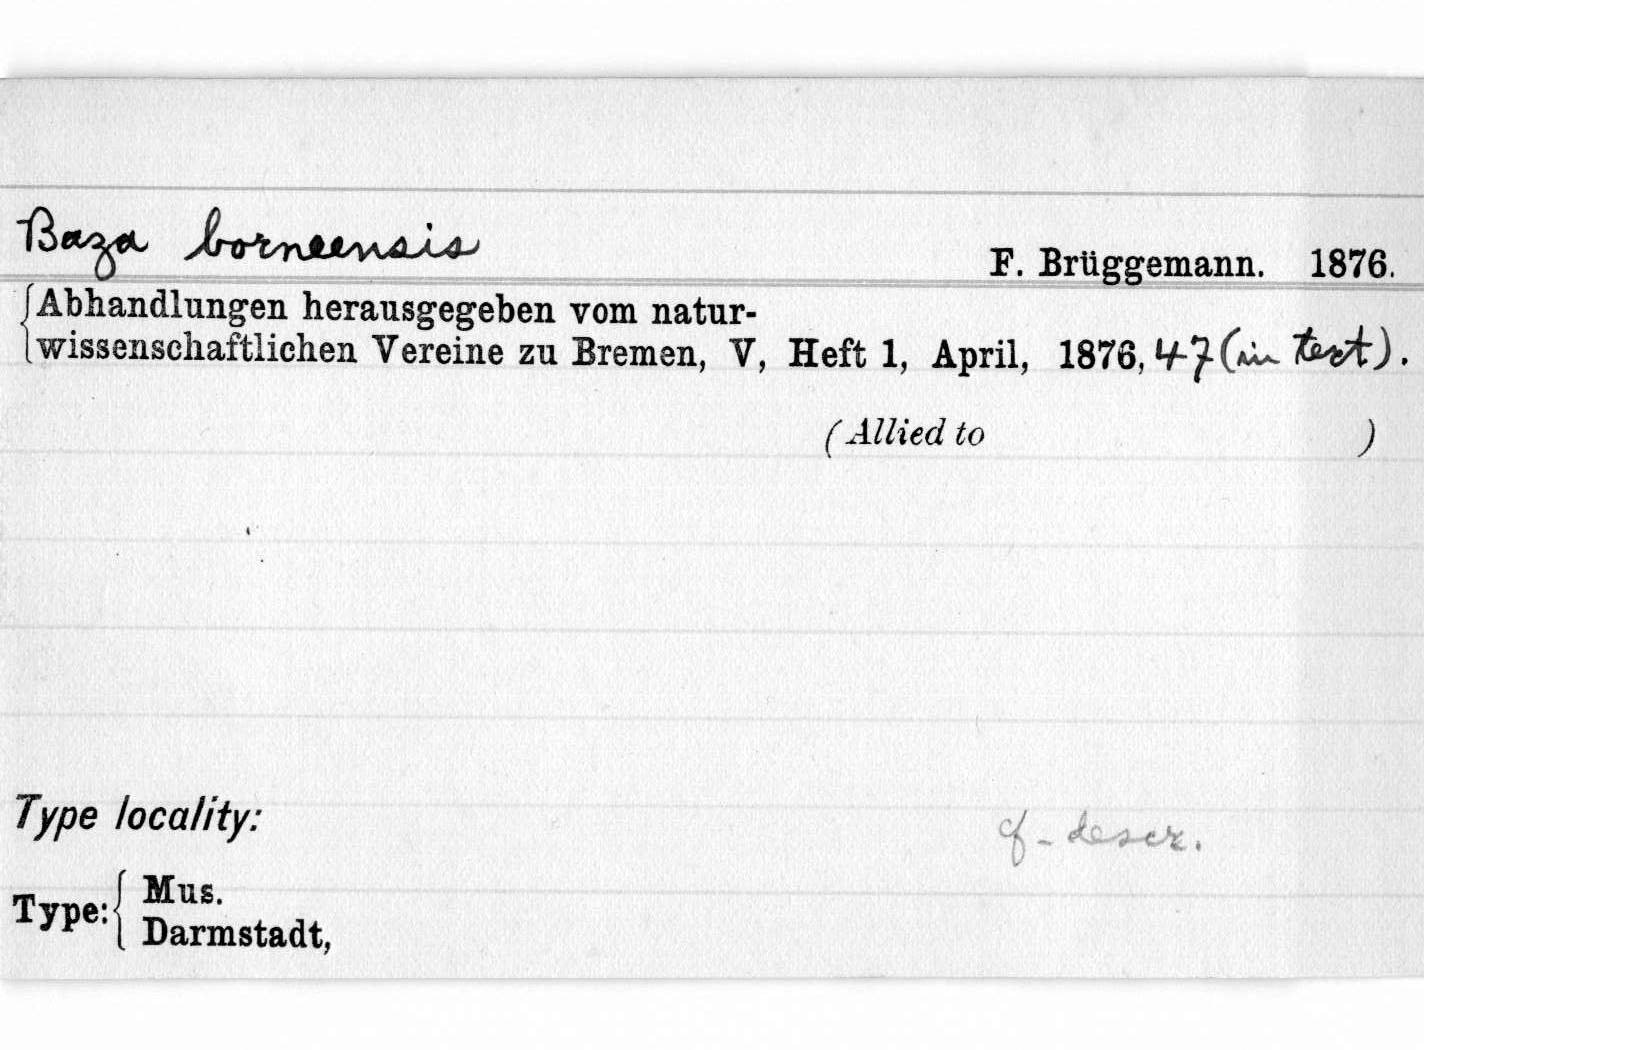 Baza borneensis
F. Brüggemann. 1876.
Abhandlungen herausgegeben vom natur-
wissenschaftlichen Vereine zu Bremen, V, Heft 1, April, 1876, 47 (in text).
(Allied to )
Type locality:
cf - descr.
Type: Mus.
Darmstadt,